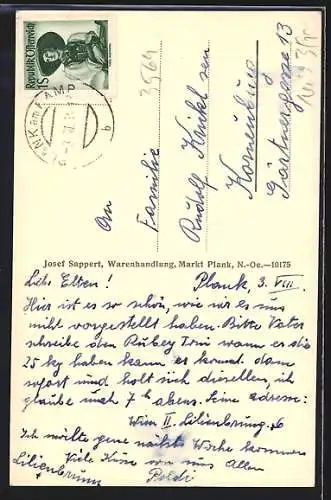 Republik Österreich
1 S
PLANK am KAMP
3564
An
Familie
Rudolf Knickl sen
Korneuburg
Gärtnergasse 13
Josef Sappert, Warenhandlung, Markt Plank, N.-Oe.—10175
Plank, 3. VIII.
Lb. Eltern!
Hier ist es so schön, wie wir es uns
nicht vorgestellt haben. Bitte Vater
schreibe den Toni wann er die
25 kg haben kann er kommt dann
sofort und holt sich dieselben, ich
glaube nach 7h abens. Seine Adresse:
Wien II. Lilienbrung. 6
Ich möchte gene nächste Woche kommen
Viele Küsse von uns Allen
Poldi
Lilienbrunn